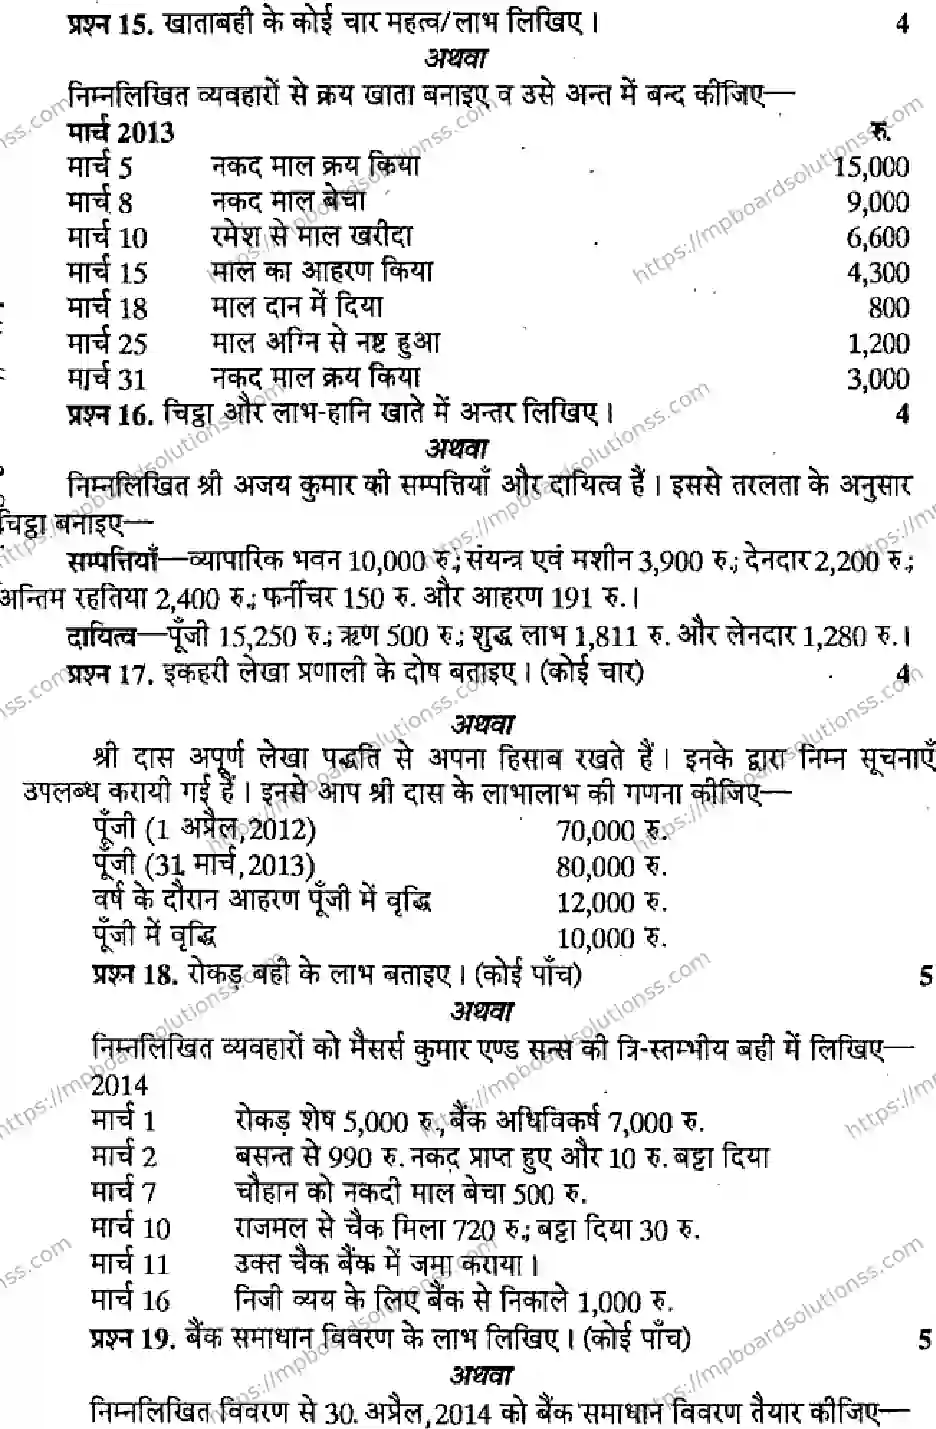 प्रश्न 15. खाताबही के कोई चार महत्व/लाभ लिखिए। 4
अथवा
निम्नलिखित व्यवहारों से क्रय खाता बनाइए व उसे अन्त में बन्द कीजिए—
मार्च 2013 रु.
मार्च 5 नकद माल क्रय किया 15,000
मार्च 8 नकद माल बेचा 9,000
मार्च 10 रमेश से माल खरीदा 6,600
मार्च 15 माल का आहरण किया 4,300
मार्च 18 माल दान में दिया 800
मार्च 25 माल अग्नि से नष्ट हुआ 1,200
मार्च 31 नकद माल क्रय किया 3,000
प्रश्न 16. चिट्ठा और लाभ-हानि खाते में अन्तर लिखिए। 4
अथवा
निम्नलिखित श्री अजय कुमार की सम्पत्तियाँ और दायित्व हैं। इससे तरलता के अनुसार
चिट्ठा बनाइए—
सम्पत्तियाँ—व्यापारिक भवन 10,000 रु.; संयन्त्र एवं मशीन 3,900 रु.; देनदार 2,200 रु.;
अन्तिम रहतिया 2,400 रु.; फर्नीचर 150 रु. और आहरण 191 रु.।
दायित्व—पूँजी 15,250 रु.; ऋण 500 रु.; शुद्ध लाभ 1,811 रु. और लेनदार 1,280 रु.।
प्रश्न 17. इकहरी लेखा प्रणाली के दोष बताइए। (कोई चार) 4
अथवा
श्री दास अपूर्ण लेखा पद्धति से अपना हिसाब रखते हैं। इनके द्वारा निम्न सूचनाएँ
उपलब्ध करायी गई हैं। इनसे आप श्री दास के लाभालाभ की गणना कीजिए—
पूँजी (1 अप्रैल, 2012) 70,000 रु.
पूँजी (31 मार्च, 2013) 80,000 रु.
वर्ष के दौरान आहरण पूँजी में वृद्धि 12,000 रु.
पूँजी में वृद्धि 10,000 रु.
प्रश्न 18. रोकड़ बही के लाभ बताइए। (कोई पाँच) 5
अथवा
निम्नलिखित व्यवहारों को मैसर्स कुमार एण्ड सन्स की त्रि-स्तम्भीय बही में लिखिए—
2014
मार्च 1 रोकड़ शेष 5,000 रु., बैंक अधिविकर्ष 7,000 रु.
मार्च 2 बसन्त से 990 रु. नकद प्राप्त हुए और 10 रु. बट्टा दिया
मार्च 7 चौहान को नकदी माल बेचा 500 रु.
मार्च 10 राजमल से चैक मिला 720 रु.; बट्टा दिया 30 रु.
मार्च 11 उक्त चैक बैंक में जमा कराया।
मार्च 16 निजी व्यय के लिए बैंक से निकाले 1,000 रु.
प्रश्न 19. बैंक समाधान विवरण के लाभ लिखिए। (कोई पाँच) 5
अथवा
निम्नलिखित विवरण से 30. अप्रैल, 2014 को बैंक समाधान विवरण तैयार कीजिए—
https://mpboardsolutionss.com